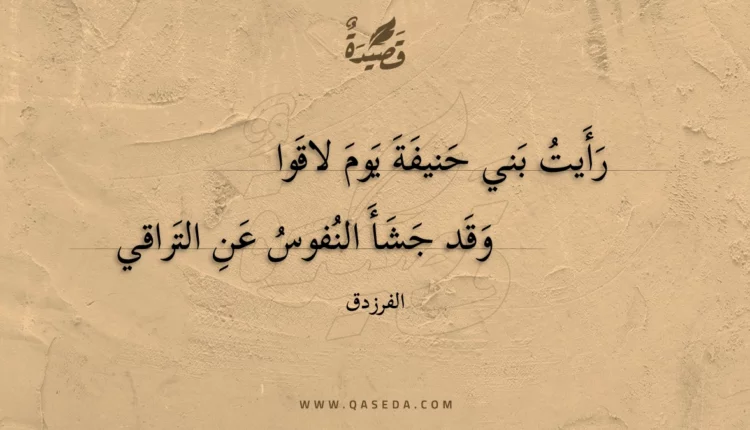 قَصِيدَةٌ
رَأَيتُ بَني حَنيفَةَ يَومَ لاقَوا
وَقَد جَشَأَ النُفوسُ عَنِ التَراقي
الفرزدق
WWW.QASEDA.COM